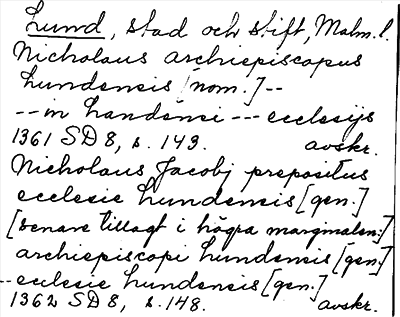 Lund, stad och stift, Malm. l.
Nicholaus archiepiscopus
Lundensis [nom.] --
-- in Landensi --- ecclesijs
1361 SD 8, s. 143. avskr.
Nicholaus Jacobj prepositus
ecclesie Lundensis [gen.]
[senare tillagt i högra marginalen:]
archiepiscopi Lundensis [gen.]
-- ecclesie Lundensis [gen.]
1362 SD 8, s. 148. avskr.